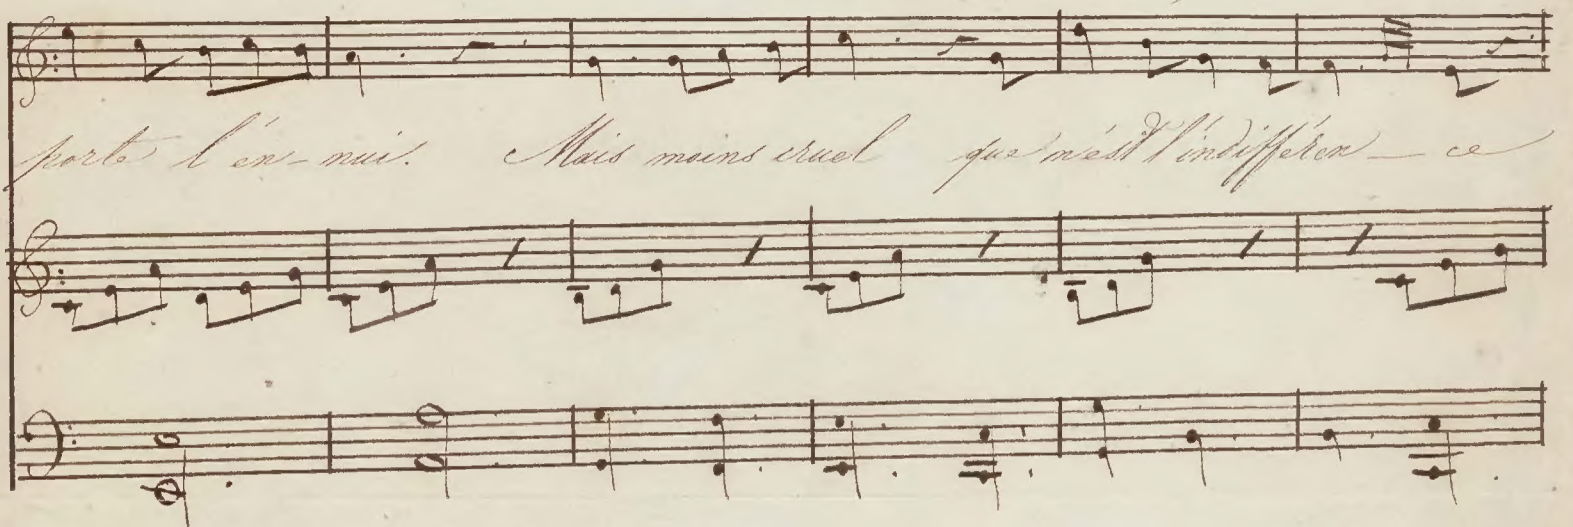 porte l'en-nui. Mais moins cruel que n'est l'indifféren-ce